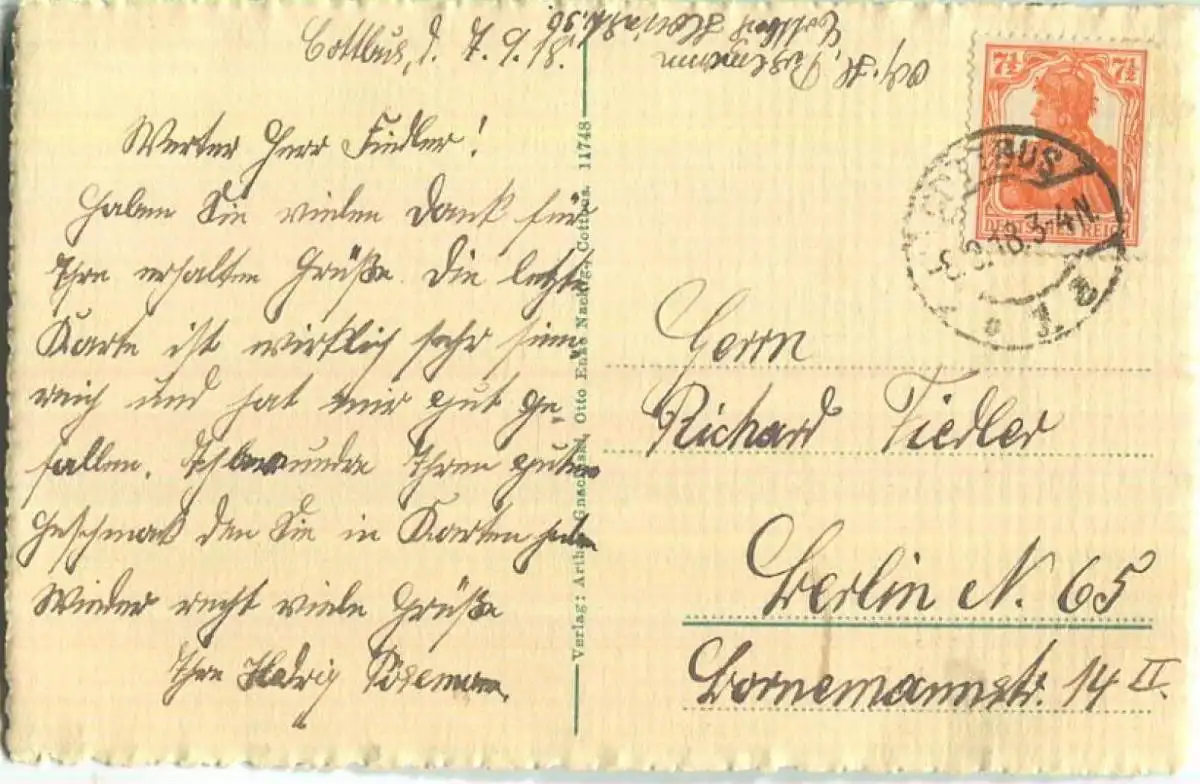 Cottbus, d. 7. 9. 18.
Werter Herr Fiedler!
Haben Sie vielen Dank für
Ihre erhalten Grüße. Die letzte
Karte ist wirklich sehr sinn
reich und hat mir gut ge
fallen. Ich bewundre Ihren guten
Geschmak den Sie in Karten haben
Wieder recht viele Grüße
Ihre Hedwig
Verlag: Arthur Gnachinski, Otto Enke Nachflg., Cottbus. 11748
7½ 7½
DEUTSCHES REICH
COTTBUS
9.18. 3-4 N.
* 1 b
Herrn
Richard Fiedler
Berlin N. 65
Bornemannstr. 14 II.